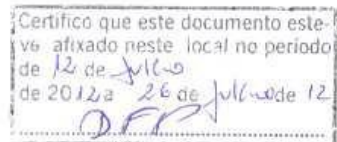 Certifico que este documento este-
ve afixado neste local no período
de 12 de Julho
de 2012 a 26 de Julho de 12
DFP